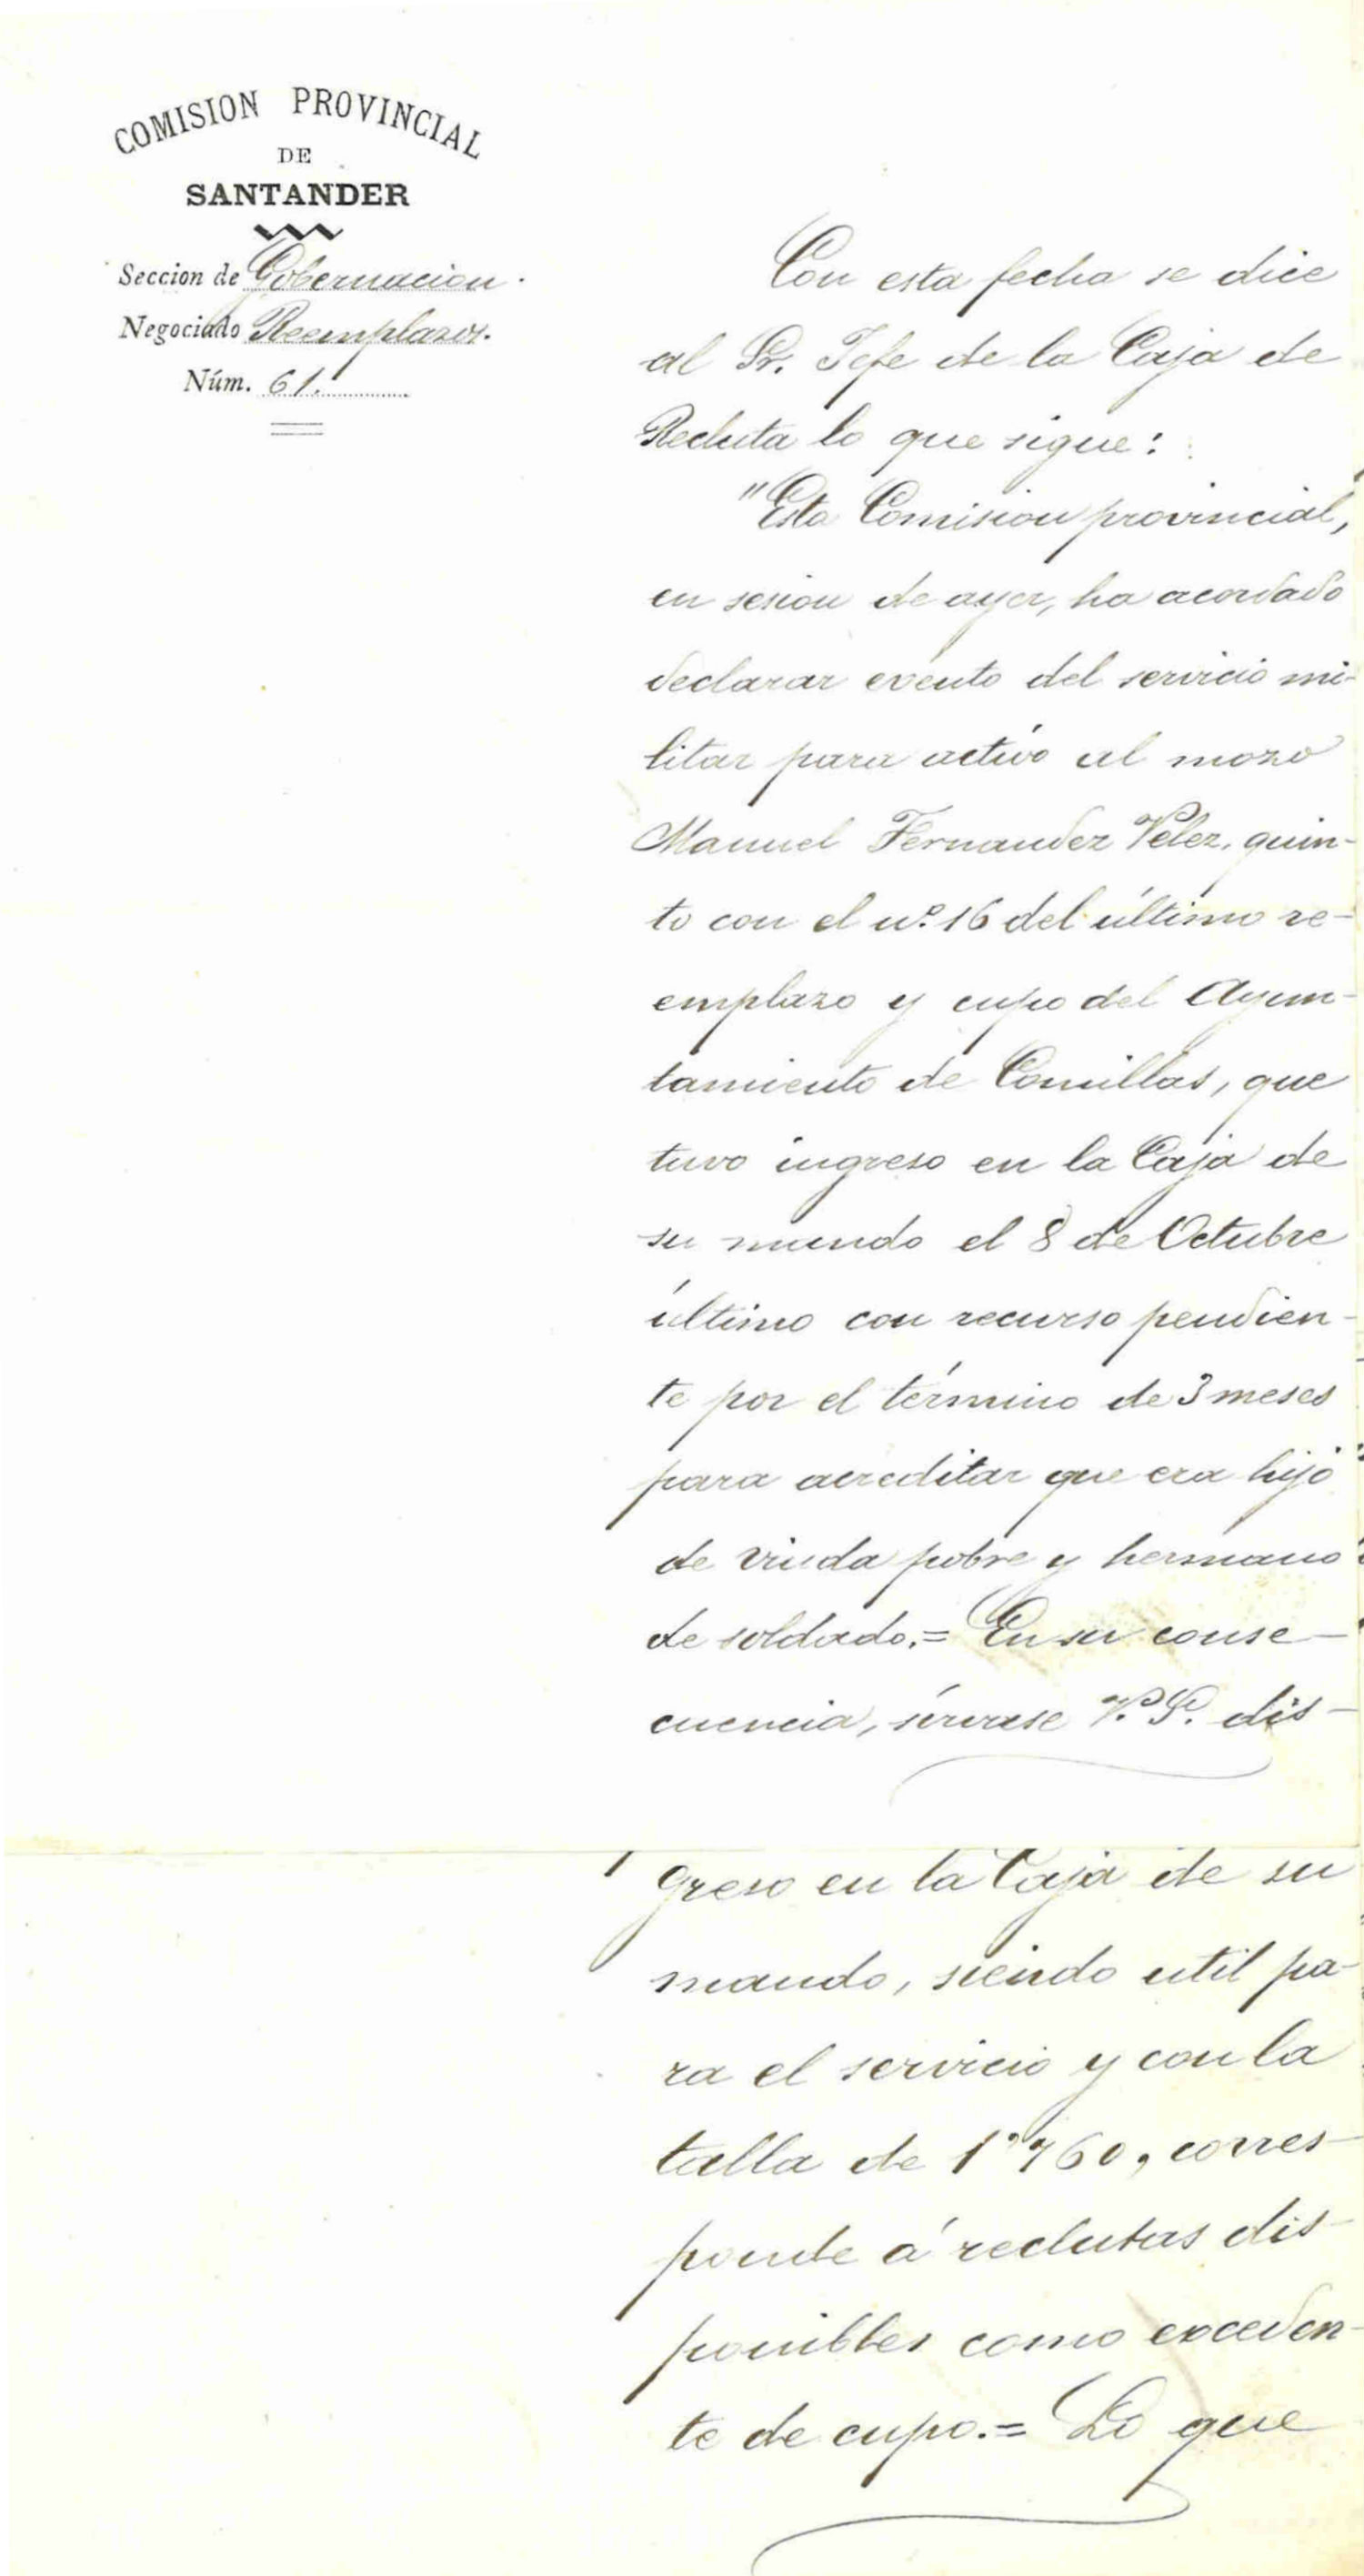 COMISION PROVINCIAL
DE
SANTANDER
Seccion de Gobernacion.
Negociado Reemplazos.
Núm. 61.
Con esta fecha se dice
al Sr. Jefe de la Caja de
Recluta lo que sigue:
"Esta Comision provincial,
en sesion de ayer, ha acordado
declarar exento del servicio mi-
litar para activo al mozo
Manuel Fernandez Velez, quin-
to con el nº 16 del último re-
emplazo y cupo del Ayun-
tamiento de Comillas, que
tuvo ingreso en la Caja de
su mando el 8 de Octubre
último con recurso pendien-
te por el término de 3 meses
para acreditar que era hijo
de viuda pobre y hermano
de soldado.= En su conse-
cuencia, sírvase V.S. dis-
greso en la Caja de su
mando, siendo util pa-
ra el servicio y con la
talla de 1'760, corres-
ponde á reclutas dis-
ponibles como exceden-
te de cupo.= Lo que